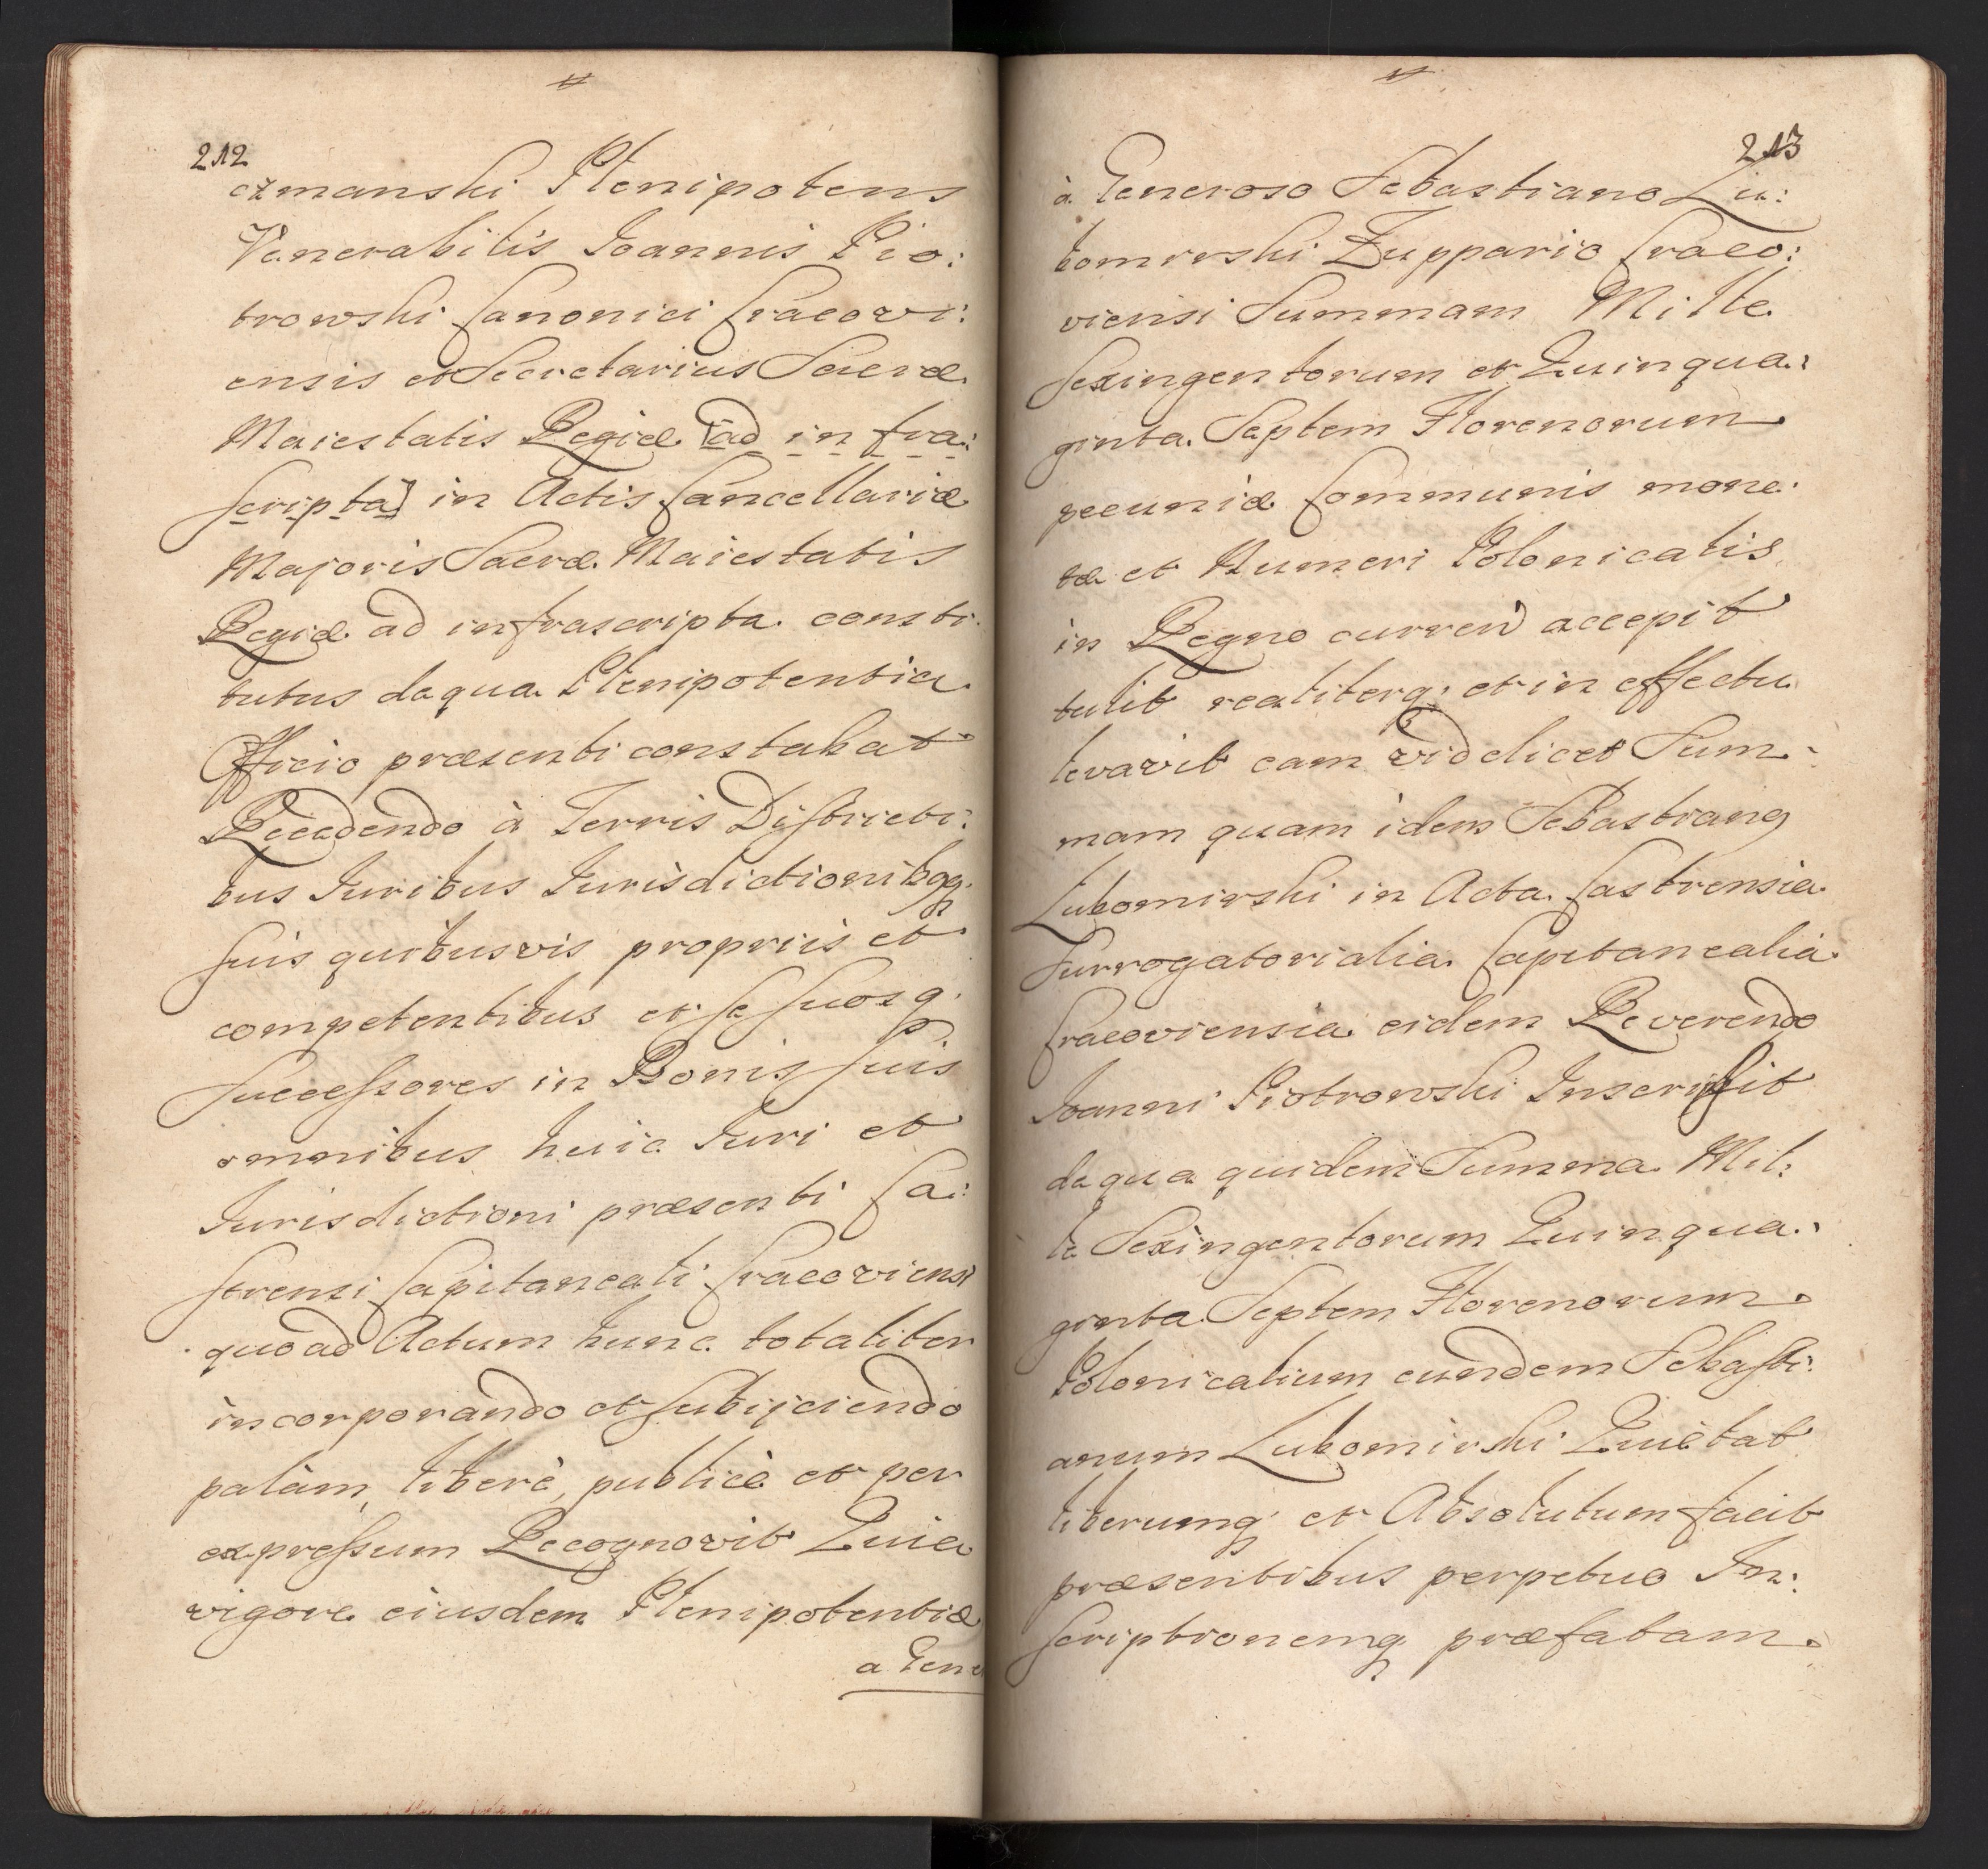 212
czmanski Plenipotens
Venerabilis Joannis Pio:
trowski Canonici Cracovi:
ensis et Secretarius Sacræ
Maiestatis Regiæ [ad infra:
scripta] in Actis Cancellariæ
Majoris Sacræ Maiestatis
Regiæ ad infrascripta consti:
tutus de qua Plenipotentia
Officio præsenti constabat
Recedendo à Terris Districti:
bus Juribus Jurisdictionibqq.
suis quibusvis propriis et
competentibus et se suosq.
successores in Bonis suis
omnibus huic Juri et
Jurisdictioni præsenti Ca:
strensi Capitaneali Cracoviensi
quo ad Actum hunc totaliter
incorporando et subijciendo
palàm, liberè, publicè et per
expressum Recognovit Quia
vigore eiusdem Plenipotentiæ
a Gene
213
à Generoso Sebastiano Lu:
bomirski Zuppario Craco:
viensi Summam Mille
Sexingentorum et Quinqua:
ginta Septem Florenorum
pecuniæ Communis mone:
tæ et Numeri Polonicalis
in Regno curren accepit
tulit realiterq; et in effectu
levavit eam videlicet Sum:
mam quam idem Sebastiang
Lubomirski in Acta Castrensia
Surrogatorialia Capitanealia
Cracoviensia eidem Reverendo
Joanni Piotrowski Inscripsit
de qua quidem Summa Mil:
le Sexingentorum Quinqua:
ginta Septem Florenorum
Polonicalium eundem Sebasti:
anum Lubomirski Quietat
liberumq; et Absolutum facit
præsentibus perpetuo In:
scriptionemq; præfatam